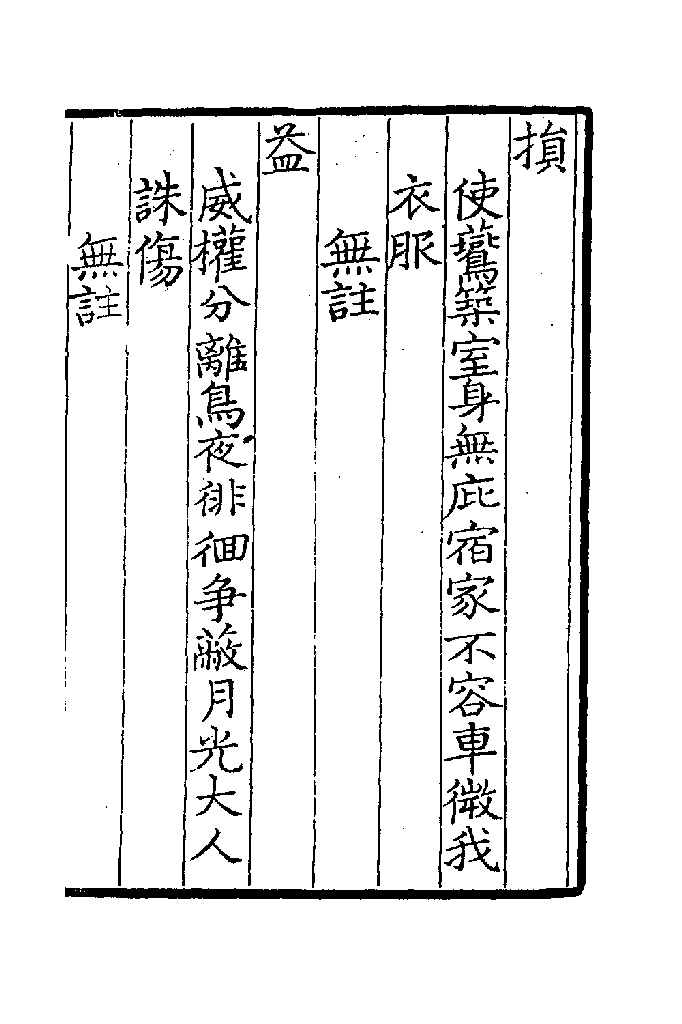 損
使鷰築室身無庇宿家不容車微我
衣服
無註
益
威權分離鳥夜徘徊争蔽月光大人
誅傷
無註